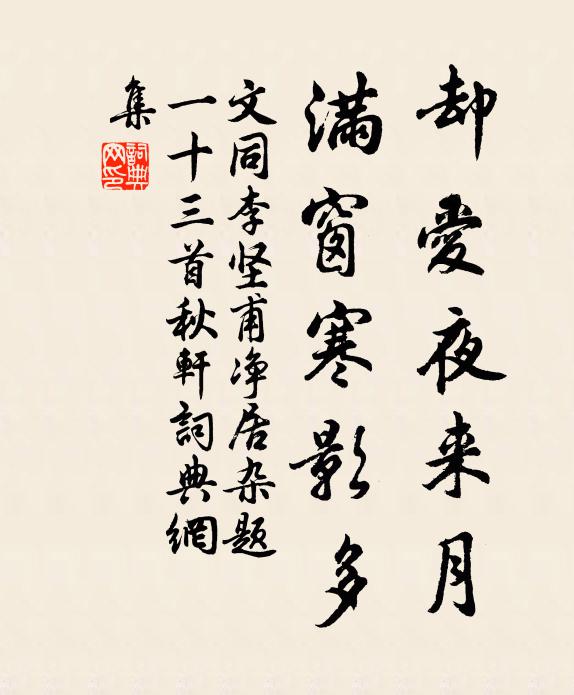 却愛夜来月
滿窗寒影多
文同李坚甫净居杂题
一十三首秋軒詞典網
集
詞典
网印